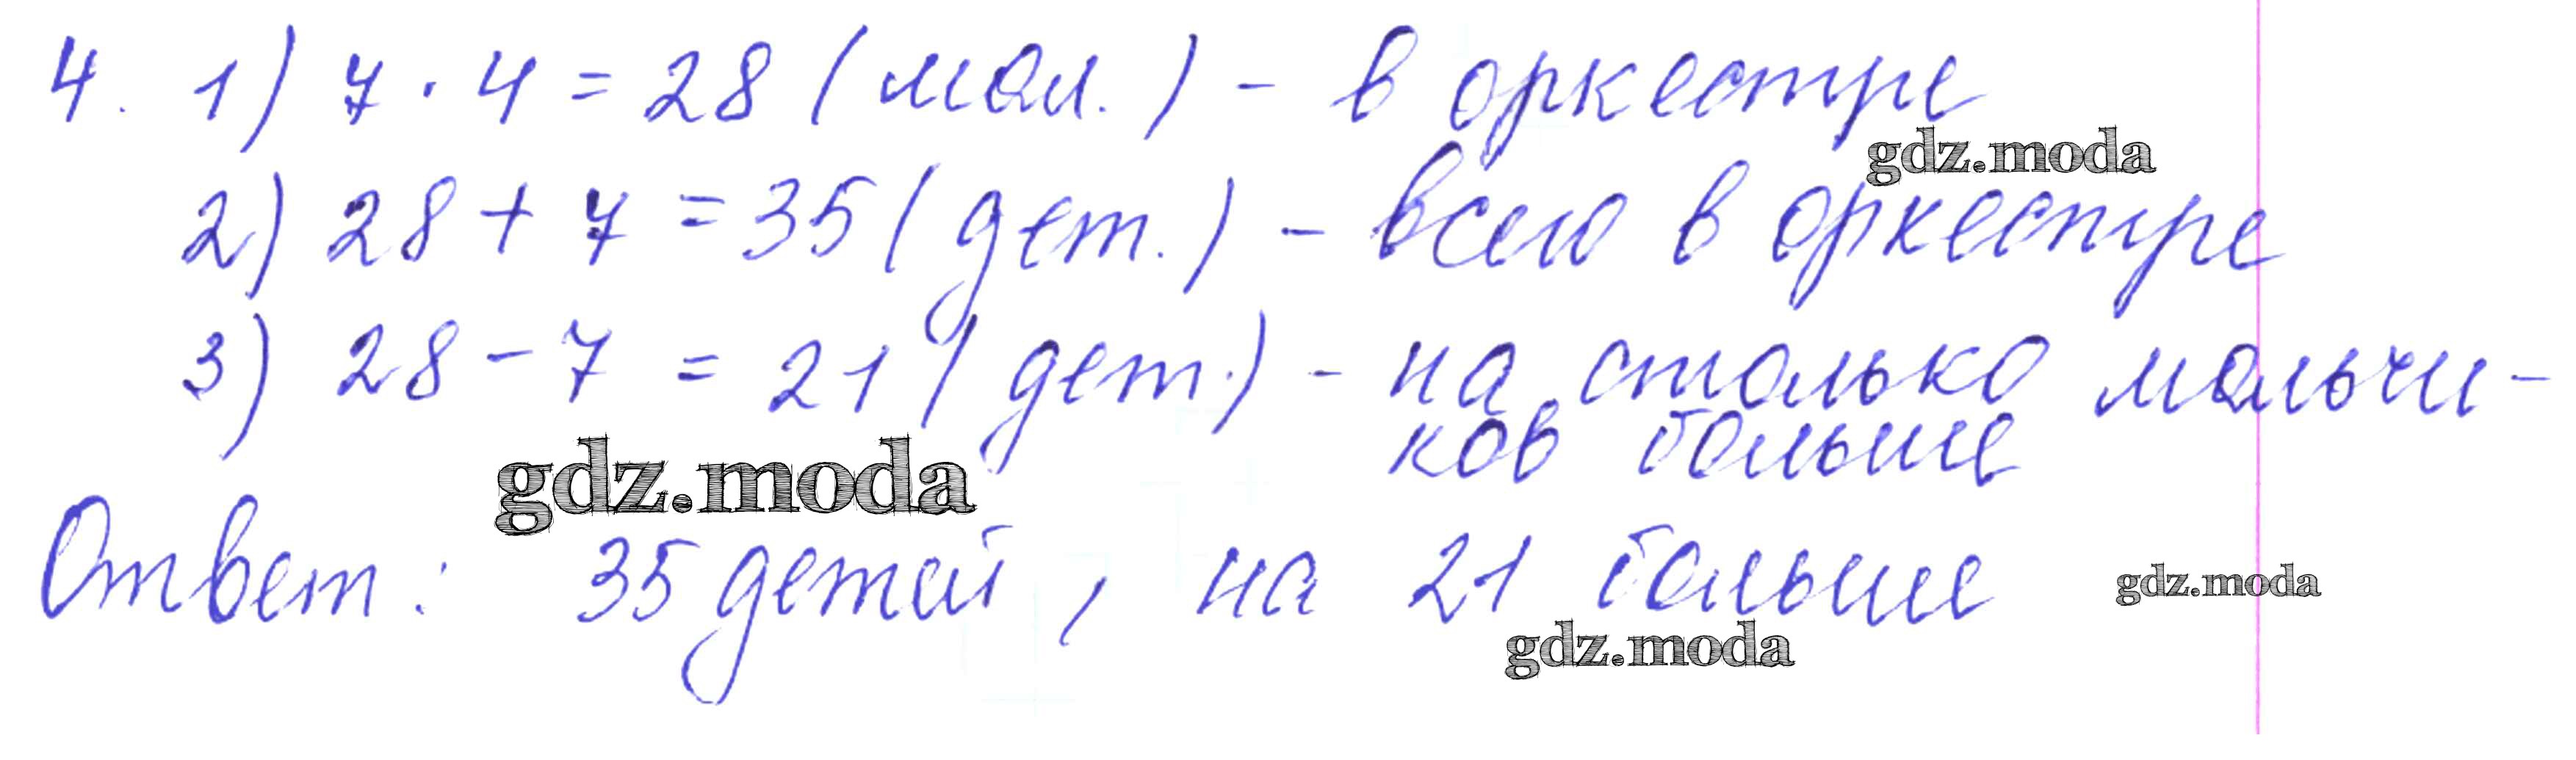 4. 1) 7 · 4 = 28 (мал.) - в оркестре
gdz.moda
2) 28 + 7 = 35 (дет.) - всего в оркестре
3) 28 - 7 = 21 (дет.) - на столько мальчи-
ков больше
gdz.moda
Ответ: 35 детей, на 21 больше
gdz.moda
gdz.moda